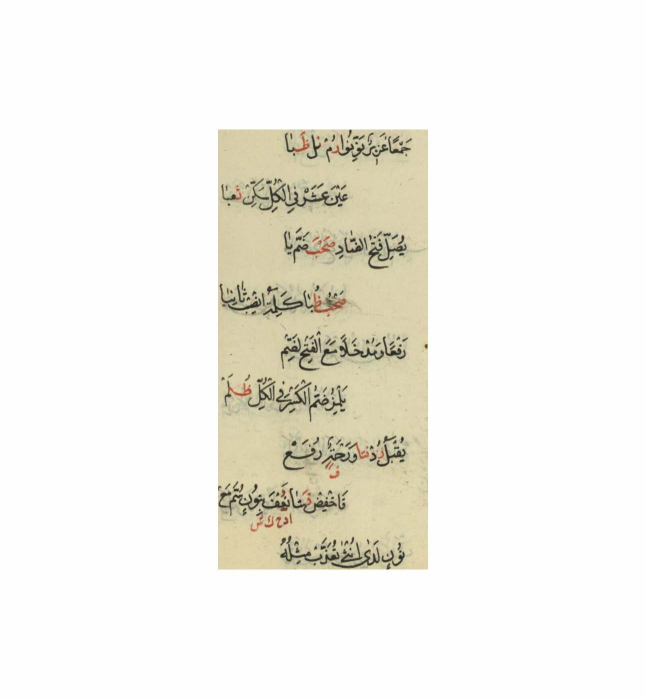 جَمْعًا عُزَيْرٌ نَوِّنُوا رُمْ نَلْ ظُبَا
عَيْنَ عَشَرْ فِي الْكُلِّ سَكِّنْ ثَغَبَا
يُضَلُّ فَتْحُ الضَّادِ صَحْبٌ ضَمُّ يَا
صَحْبٌ ظُبَا كَلِمَةُ انْصِبْ ثَانِيَا
رَفْعًا وَمَدْخَلًا مَعَ الْفَتْحِ لِضَمّ
يَلْمِزُ ضَمُّ الْكَسْرِ فِي الْكُلِّ ظُلَمْ
يُقْبَلُ رُدْ فَتًا وَرَحْمَةٌ رُفِعْ
فَاخْفِضْ فَشَا يُعْفَ بِنُونٍ سَمِّ مَعْ
نُونٍ لَدَى أُنْثَى تُعَذَّبْ مِثْلُهُ